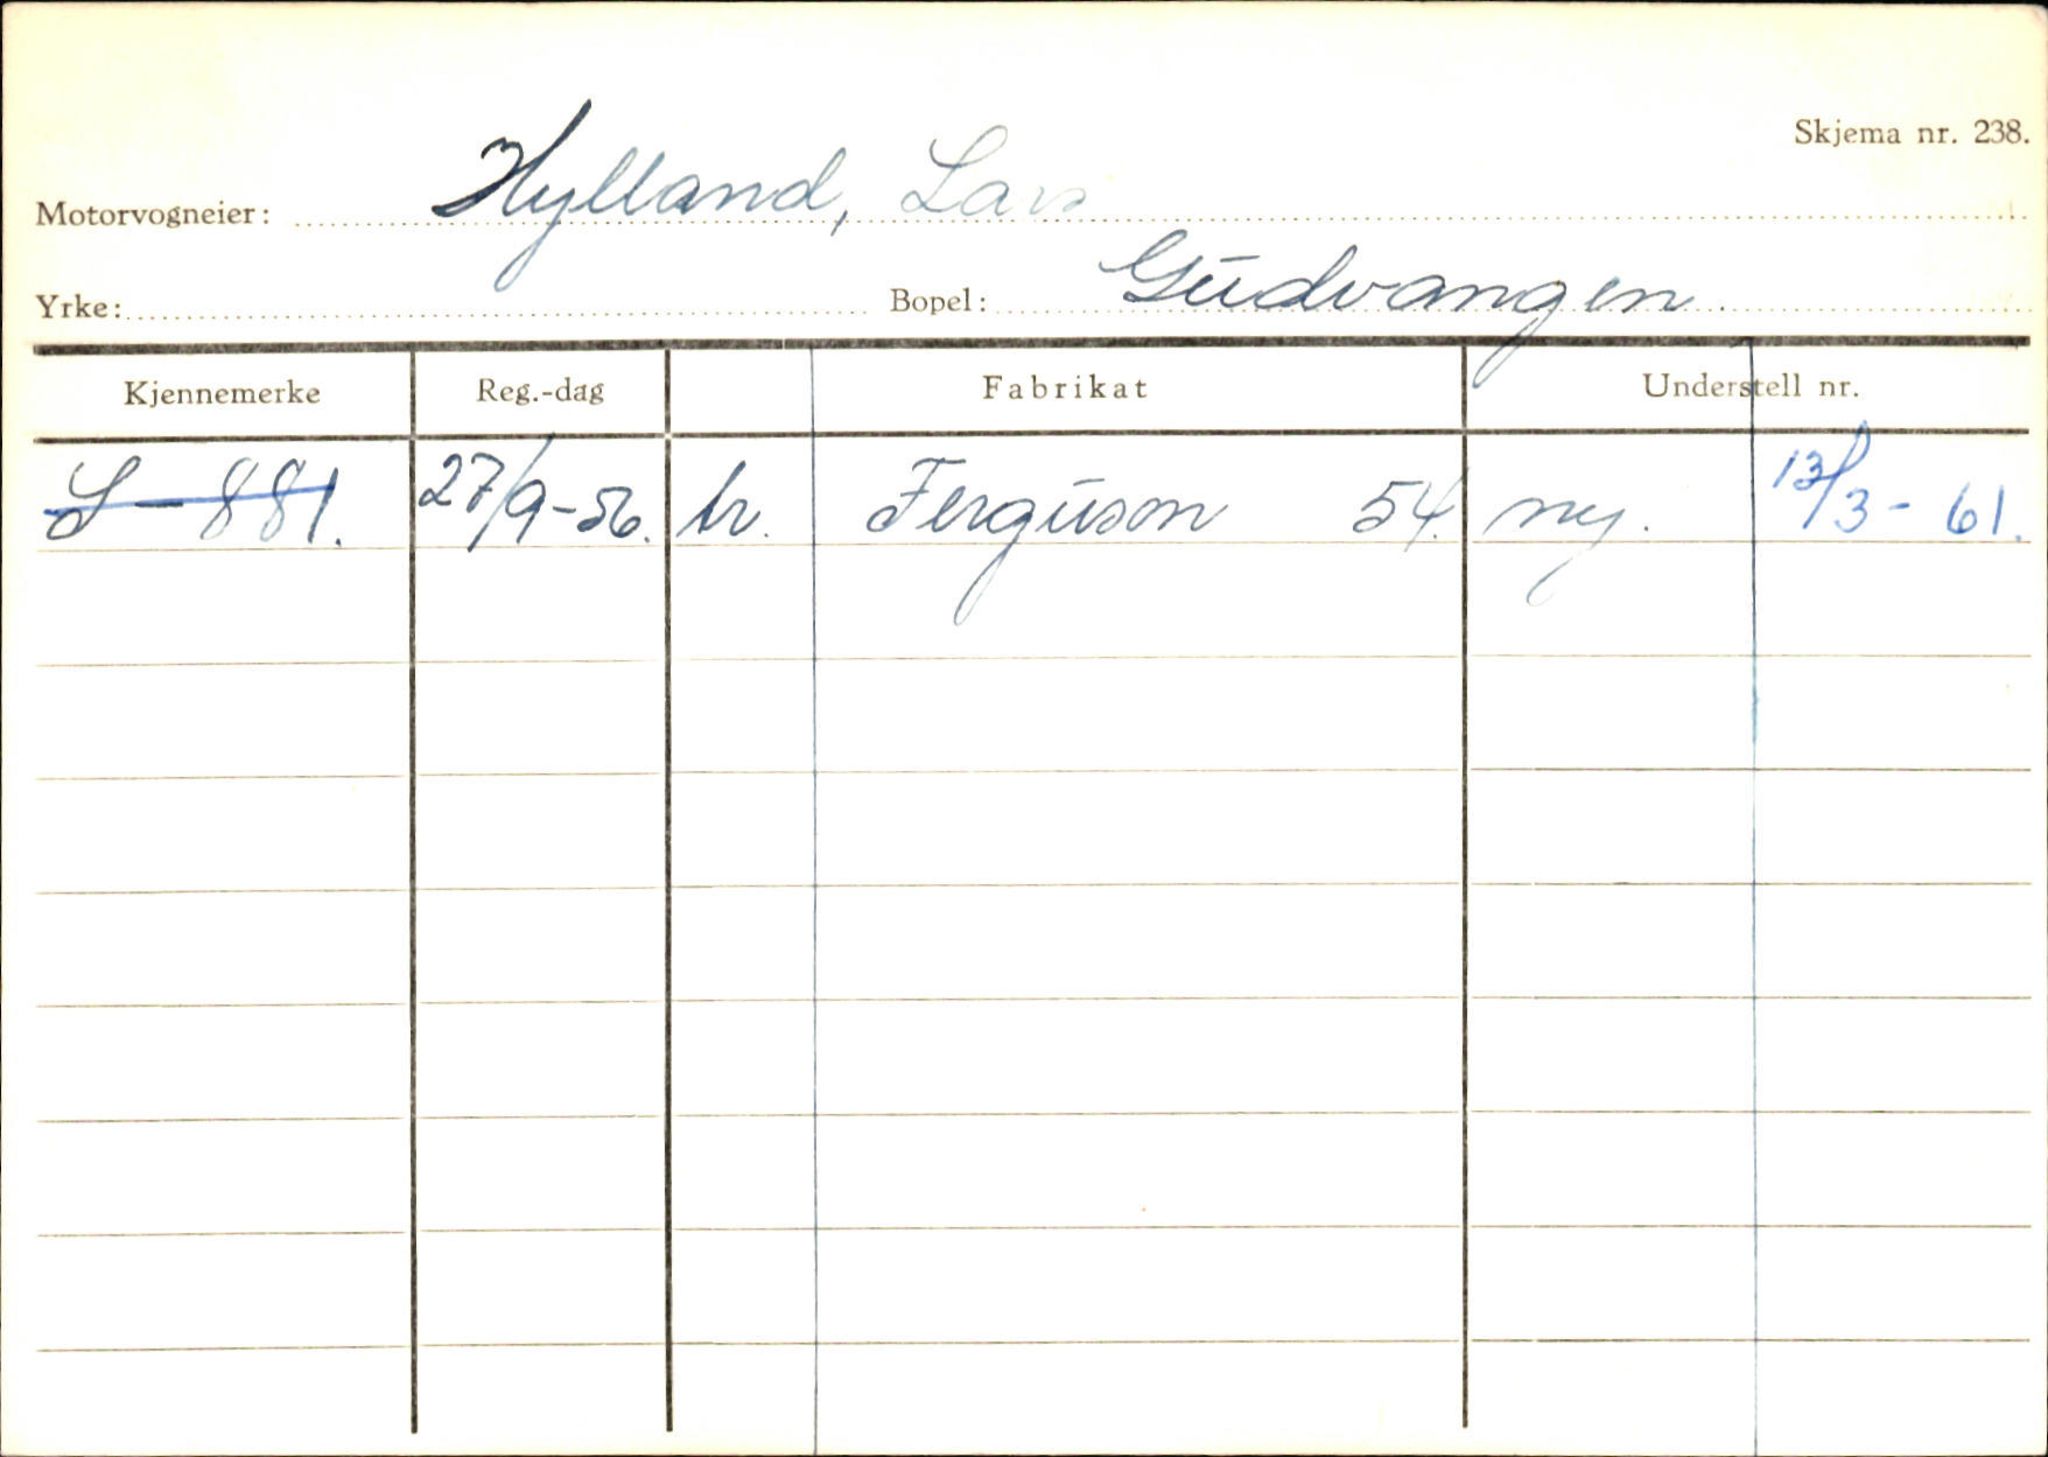 Skjema nr. 238.
Motorvogneier: Hylland, Lars
Yrke: Bopel: Gudvangen
Kjennemerke Reg.-dag Fabrikat Understell nr.
S-881. 27/9-56. tr. Ferguson 54. ny. 13/3-61.